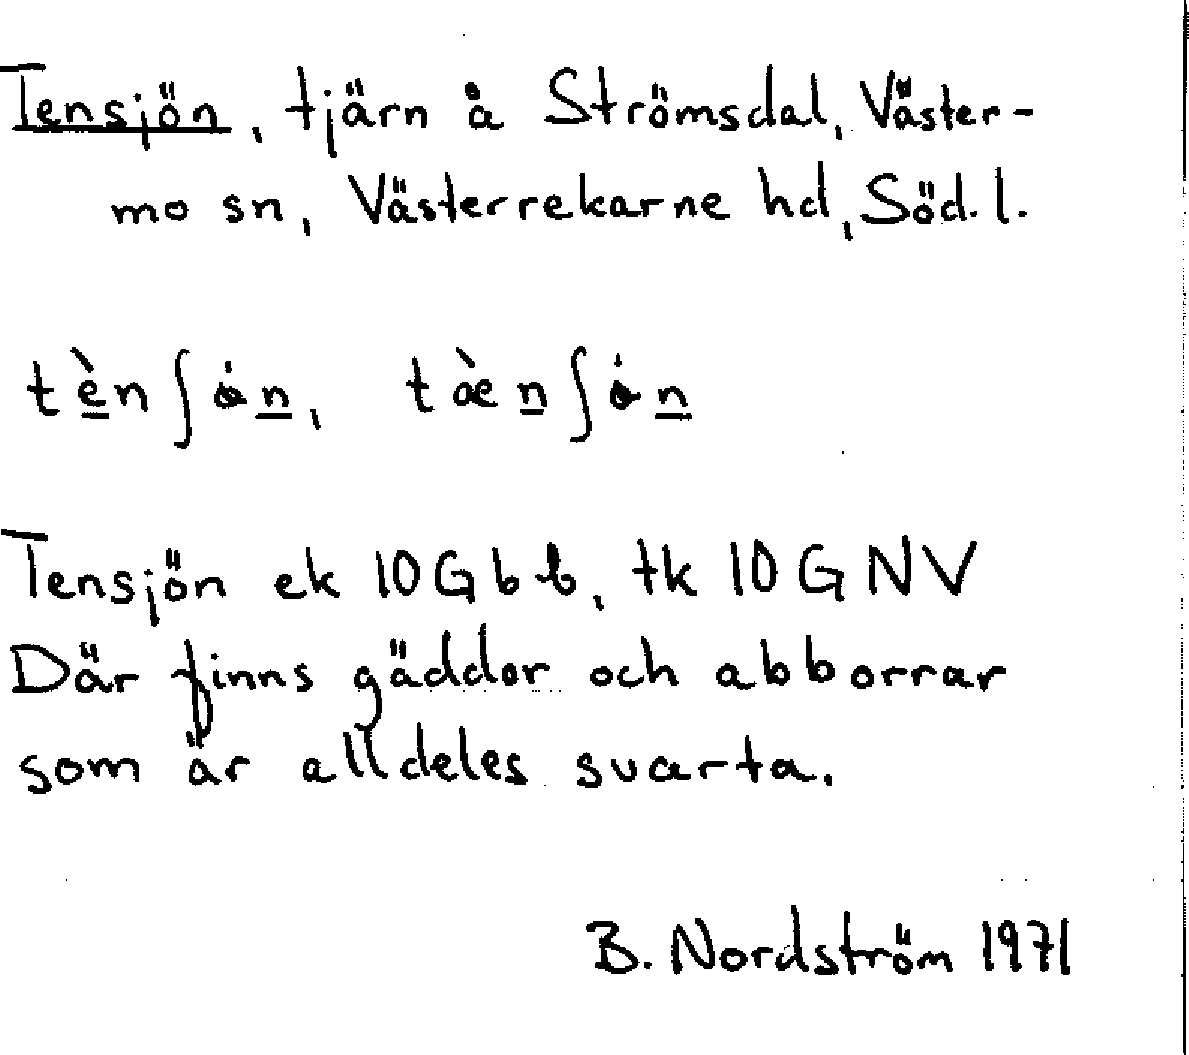 Tensjön, tjärn å Strömsdal, Väster-
mo sn, Västerrekarne hd, Söd. l.
tèn∫ȯn, tæ̀n∫ȯn
Tensjön ek 10Gbb, tk 10GNV
Där finns gäddor och abborrar
som är alldeles svarta.
B. Nordström 1971